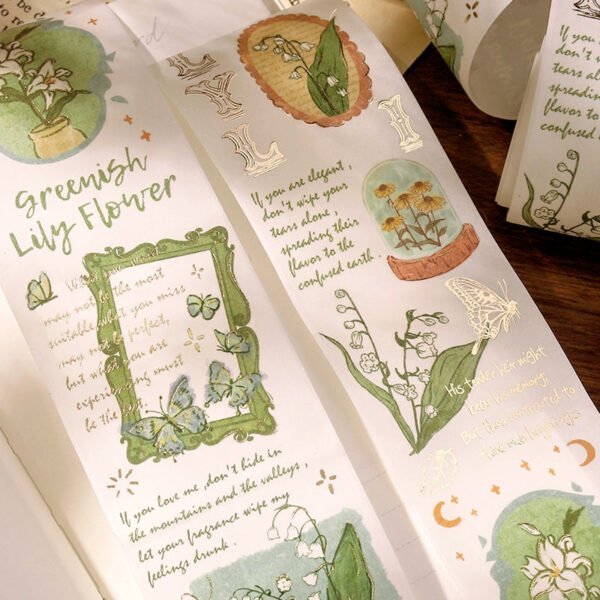 Greenish
Lily Flower
may not be the most
suitable, what you miss
may not be perfect,
but what you are
experiencing must
be the
If you love me ,don't hide in
the mountains and the valleys ,
let your fragrance wipe my
feelings drunk .
LYL
I
If you are elegant ,
don't wipe your
tears alone ,
spreading their
flavor to the
confused earth .
His tender heir might
bear his memory:
But thou contracted to
thine own
If you
don't w
tears al
spreading
flavor to
confused e